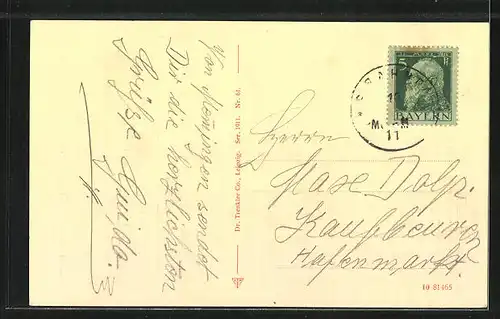 Von Menzingen sendet
Dir die herzlichsten
Grüße Guido.
Dr. Trenkler Co., Leipzig. Ser. 1911. Nr. 61.
5
BAYERN
11
Herrn
Max Dolp.
Kaufbeuren
Hafenmarkt.
10 81465